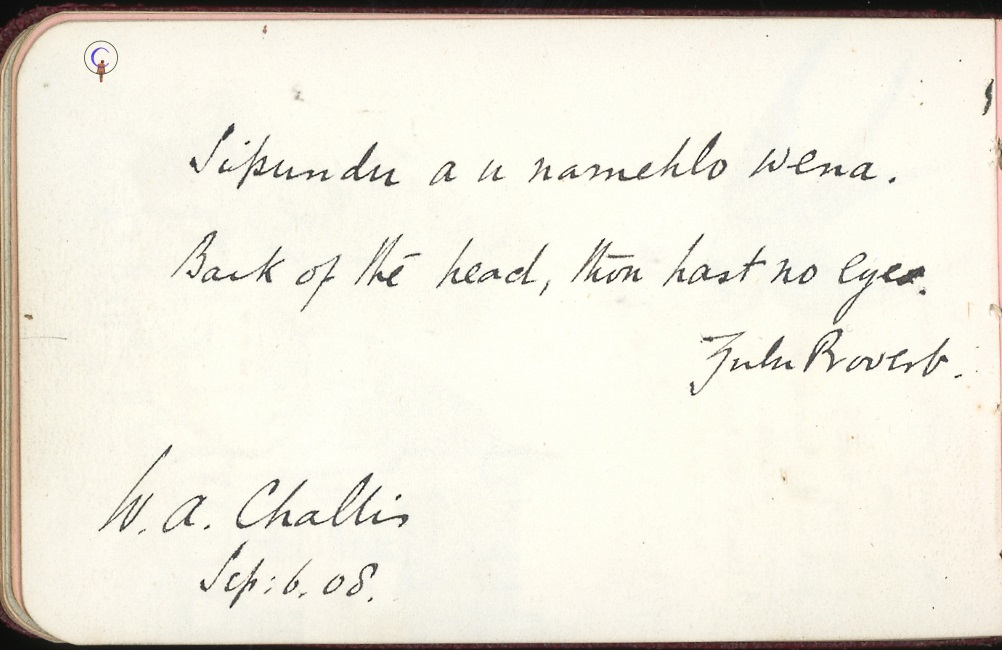 Sipundu a u namehlo wena.
Back of the head, thou hast no eyes.
Zulu Proverb.
W. A. Challis
Sep: 6. 08.